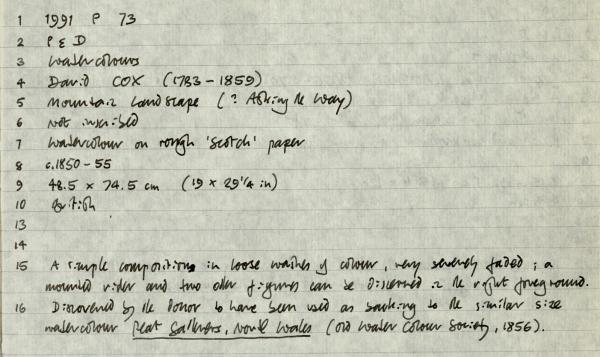 1 1991 P 73
2 P & D
3 Watercolours
4 David COX (1783-1859)
5 Mountain Landscape (? Asking the Way)
6 Not inscribed
7 Watercolour on rough 'scotch' paper
8 c.1850-55
9 48.5 x 74.5 cm (19 x 29 1/4 in)
10 British
13
14
15 A simple composition in loose washes of colour, very severely faded; a
mounted rider and two other figures can be discerned in the right foreground.
16 Discovered by the donor to have been used as backing to the similar size
watercolour Peat Gatherers, North Wales (Old Water Colour Society, 1856).